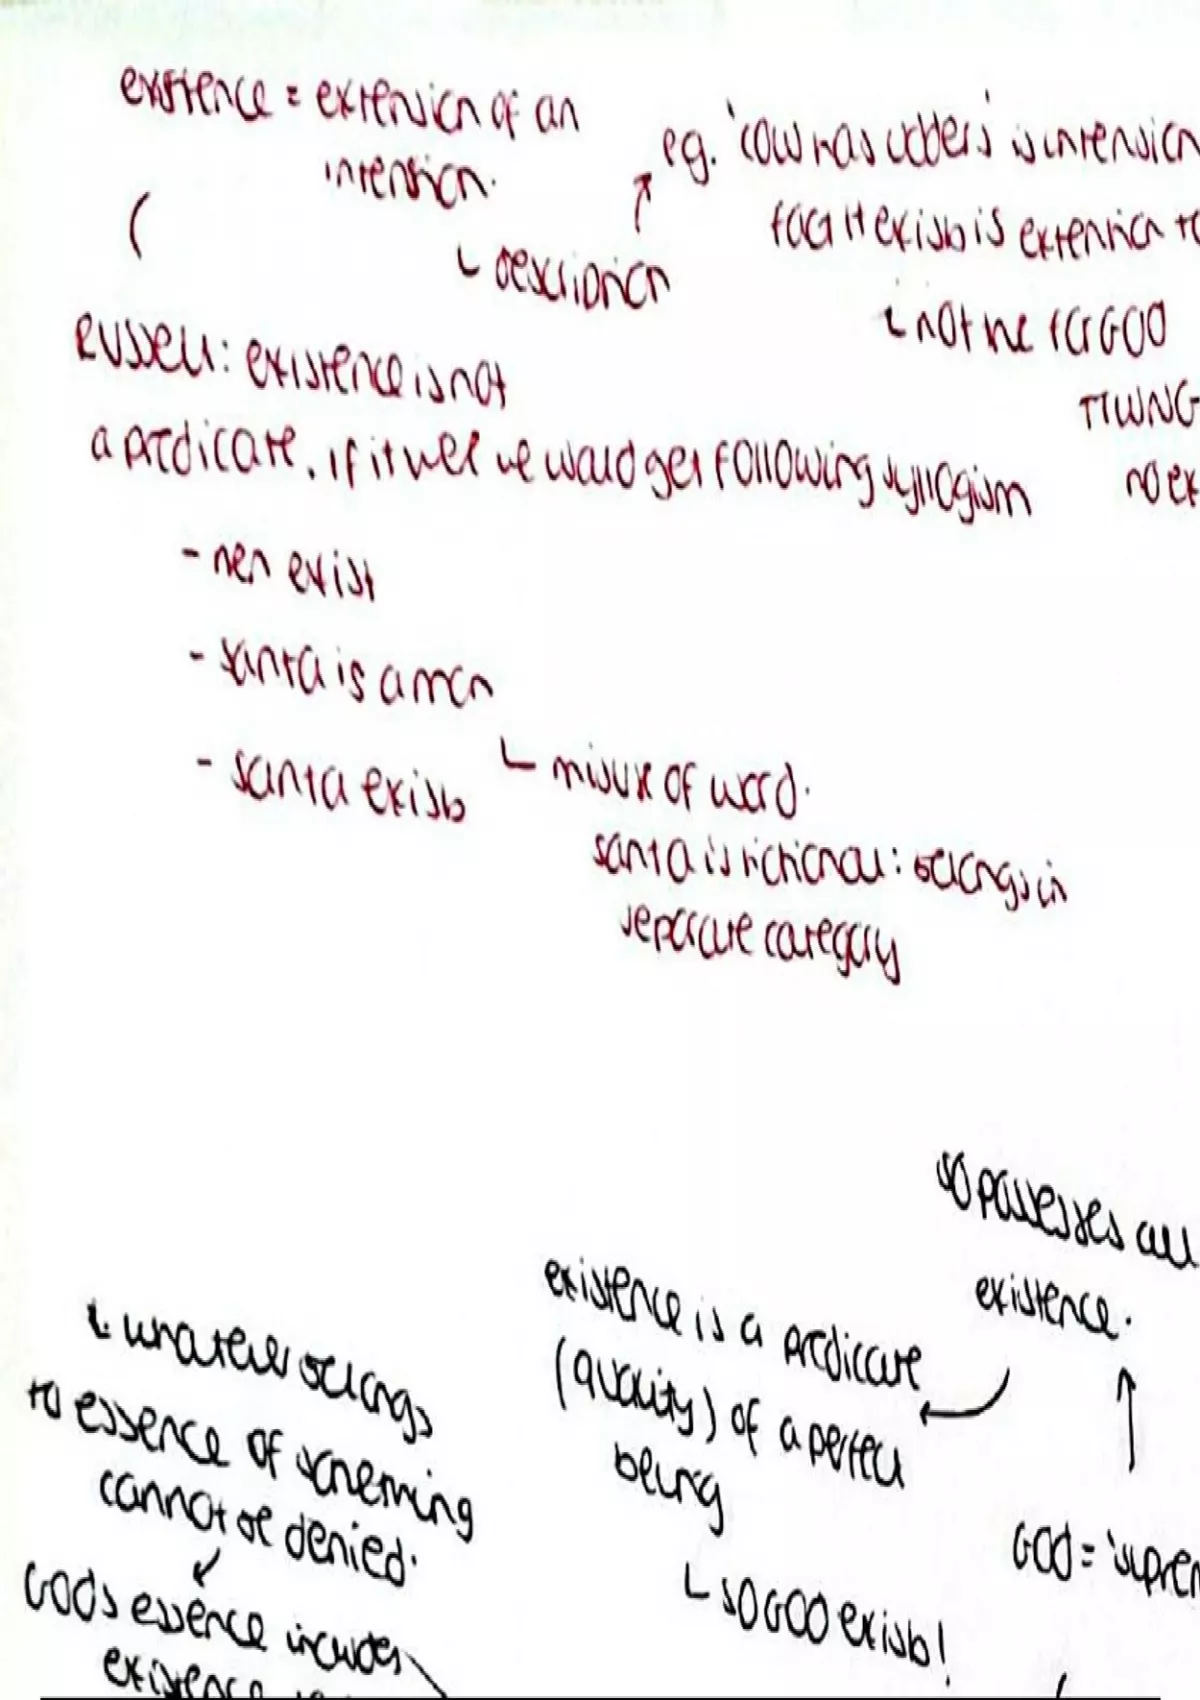 existence = extension of an
intention.
eg. 'cow has udders' is intension
fact it exists is extension to
↳ description
↳ not the for GOD
Russell: existence is not
a predicate. if it were we would get following syllogism
no ex
- men exist
- santa is a man
- santa exists
↳ misuse of word.
santa is fictional: belongs in
separate category
so possesses all
existence.
existence is a predicate
(quality) of a perfect
being
↳ so GOD exists!
GOD = 'suprem
whatever belongs
to essence of something
cannot be denied.
GODs essence includes
existence